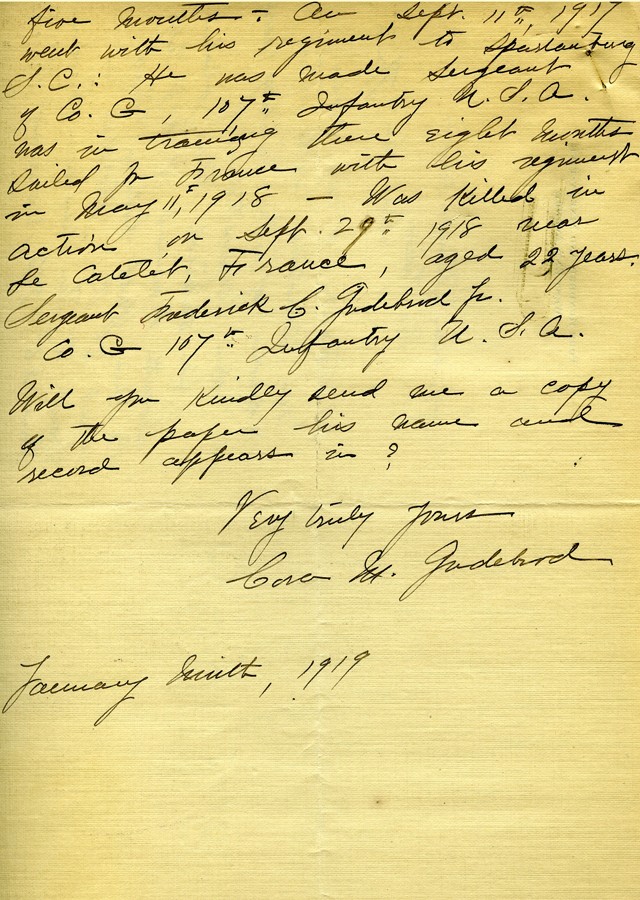 five months - On Sept. 11th, 1917
went with his regiment to Spartanburg
S.C.: He was made Sergeant
of Co. G, 107th Infantry U.S.A.
was in training there eight months
sailed for France with his regiment
in May 11, 1918 - Was killed in
action on Sept. 29th 1918 near
Le Catelet, France, aged 22 years.
Sergeant Frederick C. Gudebrod Jr.
Co. G 107th Infantry U.S.A.
Will you kindly send me a copy
of the paper his name and
record appears in?
Very truly yours
Cora M. Gudebrod
January Ninth, 1919